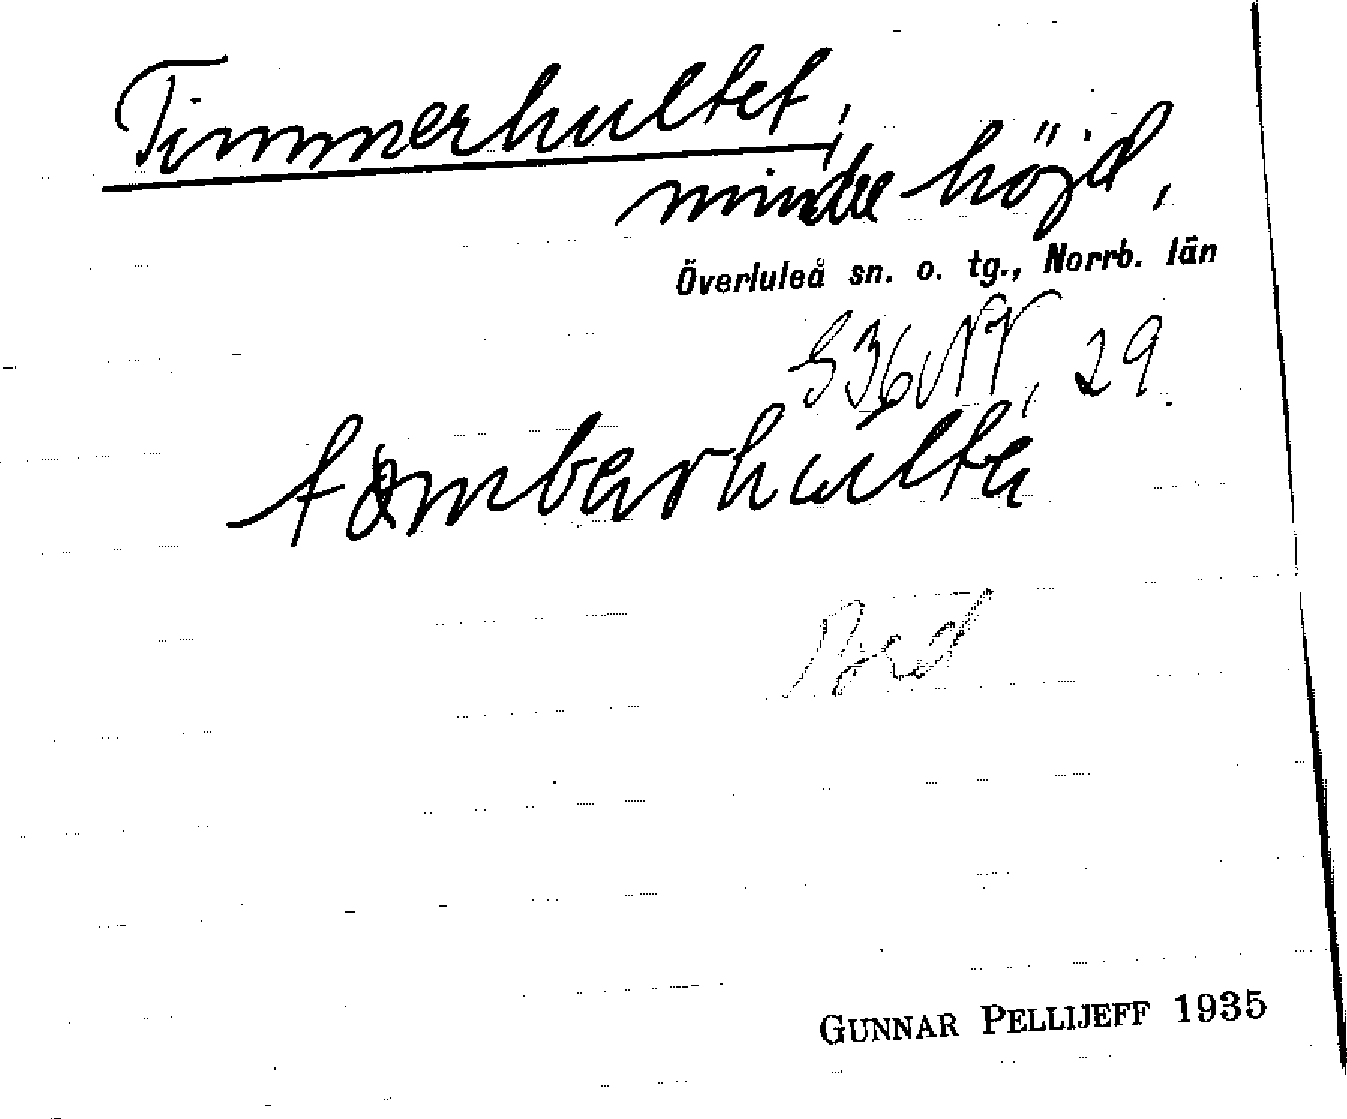 Timmerhultet,
mindre höjd,
Överluleå sn. o. tg., Norrb. län
S36NV, 29.
tamberhulte
Bed
GUNNAR PELLIJEFF 1935